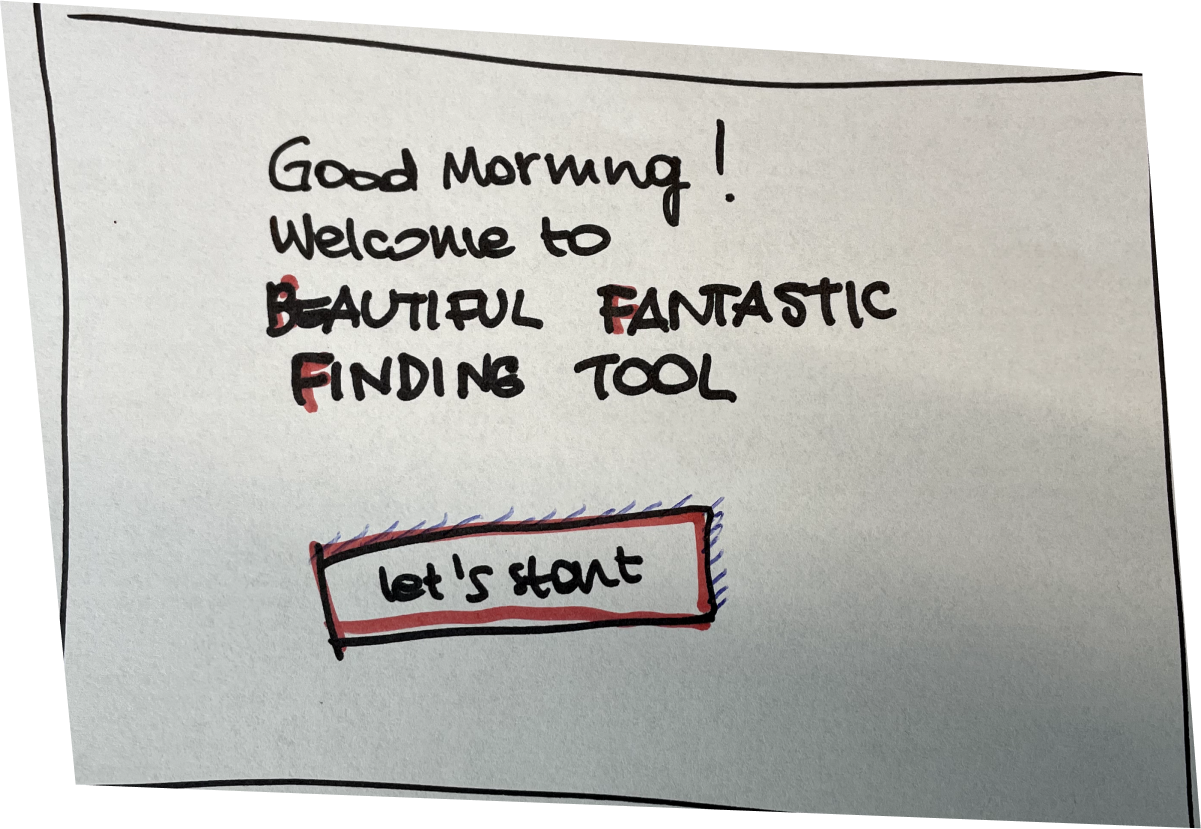 Good Morning!
Welcome to
BEAUTIFUL FANTASTIC
FINDING TOOL
let's start